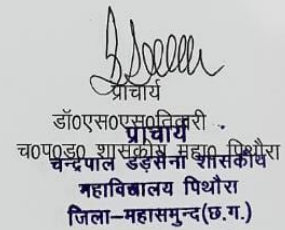 प्राचार्य
डॉ०एस०एस०तिवारी
प्राचार्य
च०प०ड० शासकीय महा० पिथौरा
चन्द्रपाल डड़सेना शासकीय
महाविद्यालय पिथौरा
जिला-महासमुन्द(छ.ग.)